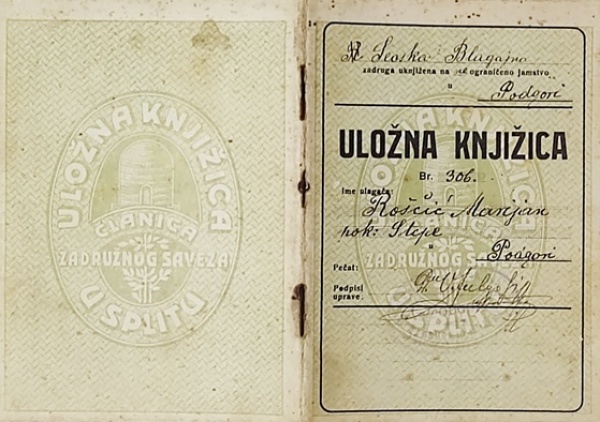 ULOŽNA KNJIŽICA
ČLANICA
ZADRUŽNOG SAVEZA
U SPLITU
Seoska Blagajna
zadruga uknjižena na ograničeno jamstvo
u Podgori
ULOŽNA KNJIŽICA
Br. 306.
Ime ulagača: Roščić Marijan
pok: Stipe
u Podgori
Pečat:
Podpisi
uprave: